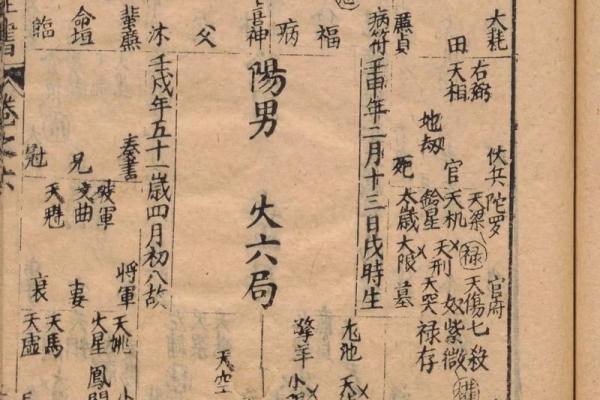 大耗
右弼
天相
田
廉貞
病符
福
病
喜神
父
沐
蜚廉
命壇
臨
伏兵
陀羅
天梁
祿
地劫
官
天机
天刑
死
鈴星
太歲
大限
墓
壬申年二月十三日戌時生
陽男
火六局
壬戌年五十一歲四月初八故
奏書
冠
兄
破軍
文曲
天魁
官府
天傷
七殺
奴
紫微
權
天哭
祿存
將軍
妻
衰
天姚
火星
鳳閣
天馬
天虛
擎羊
天空
卷之六